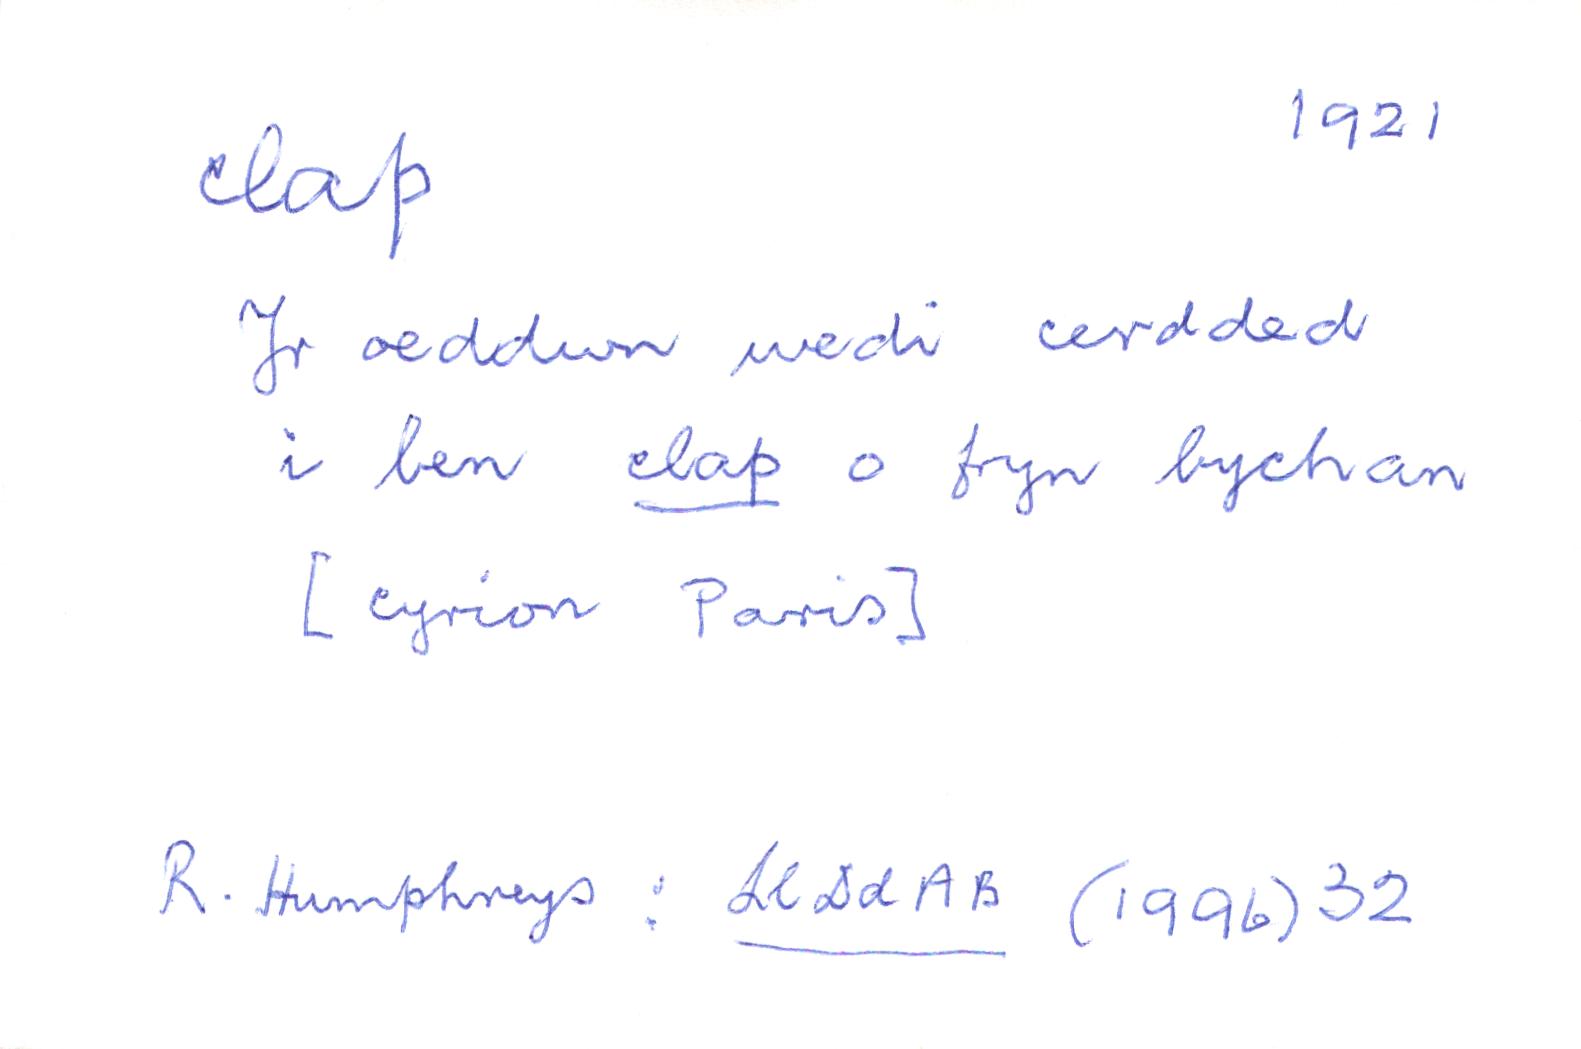 1921
clap
Yr oeddwn wedi cerdded
i ben clap o fryn bychan
[cyrion Paris]
R. Humphreys : LlDdAB (1996) 32